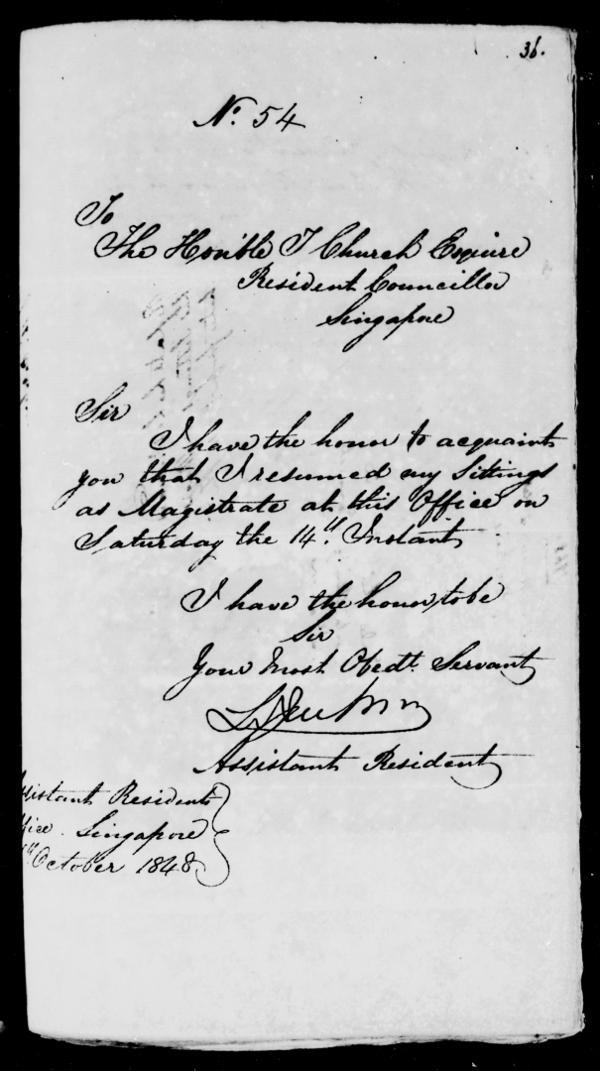 36.
No. 54
To
The Honible T Church Esquire
Resident Councillor
Singapore
Sir
I have the honor to acquaint
you that I resumed my Sittings
as Magistrate at this Office on
Saturday the 14th. Instant
I have the honor to be
Sir
Your Most Obedt. Servant
Assistant Resident
sistant Residents
fice. Singapore
October 1848